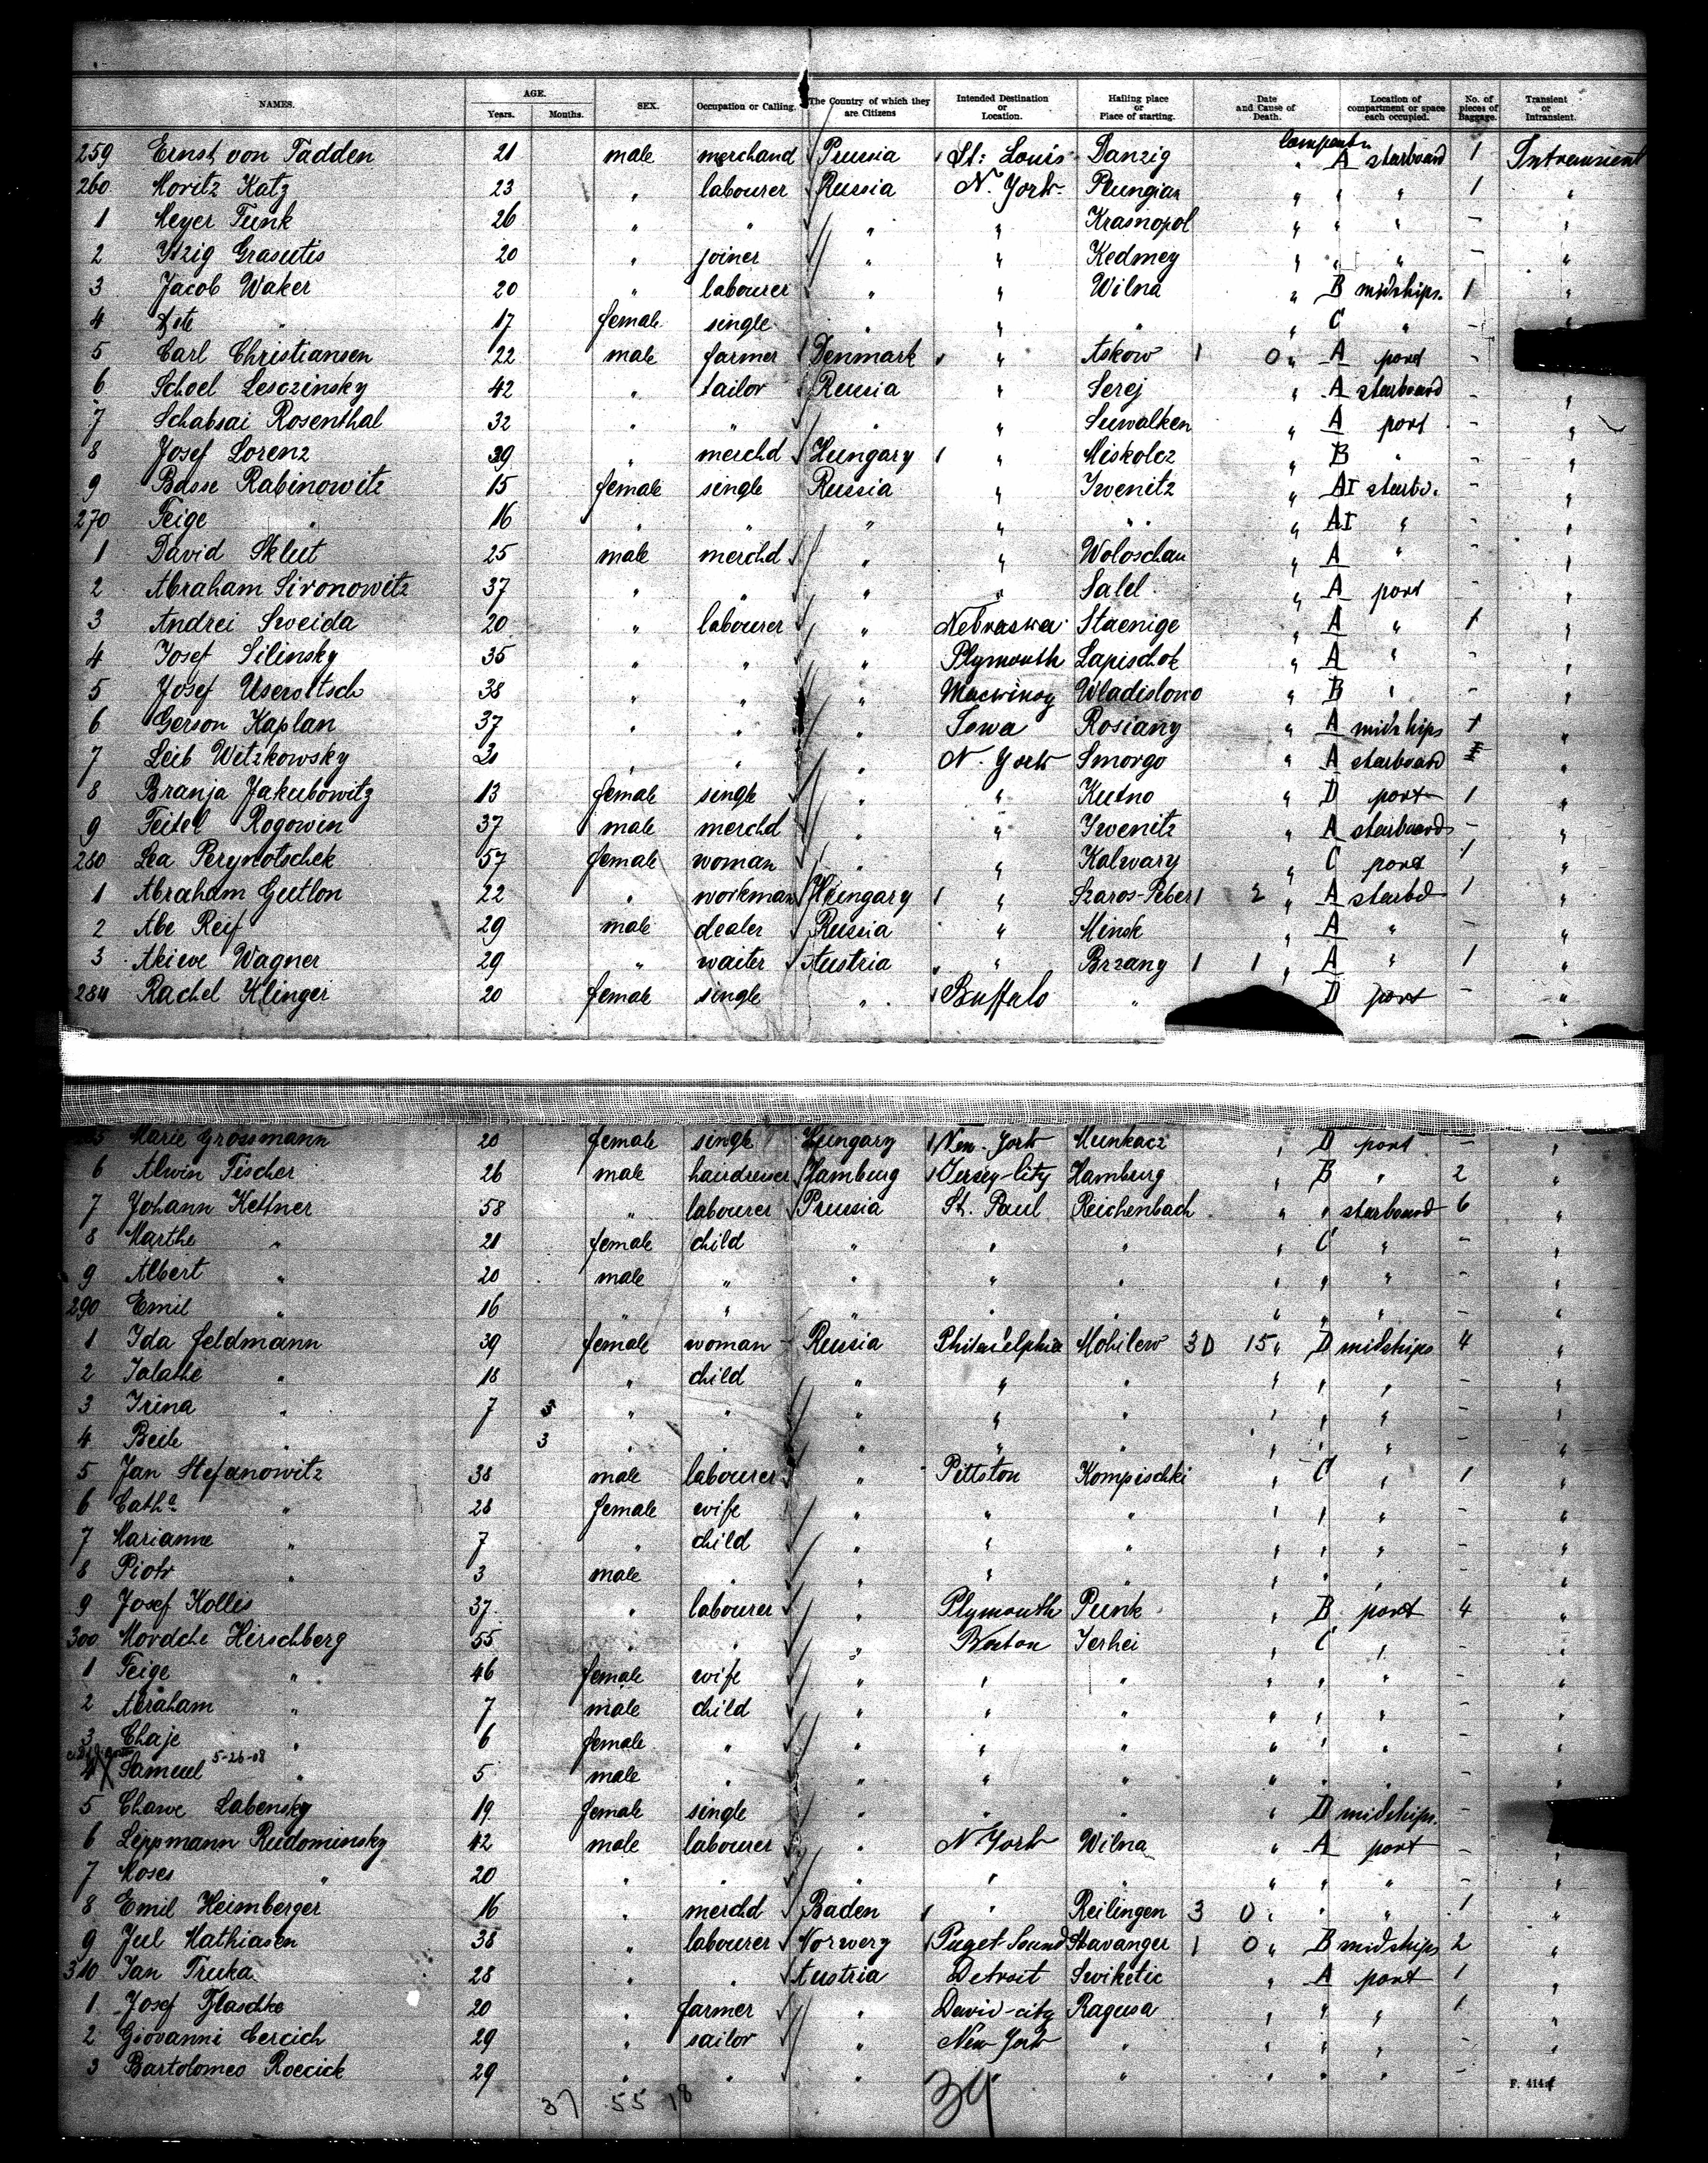 NAMES. AGE. Years. Months. SEX. Occupation or Calling. The Country of which they are Citizens Intended Destination or Location. Hailing place or Place of starting. Date and Cause of Death. Location of compartment or space each occupied. No. of pieces of Baggage. Transient or Intransient.
259 Ernst von Tadden 21 male merchand Prussia St: Louis Danzig " A starboard 1 Intransient
260 Moritz Katz 23 " labourer Russia N. York Plungian " " " 1 "
1 Meyer Funk 26 " " " " Krasnopol " " " - "
2 Ytzig Grasutis 20 " joiner " " Kedmey " " " - "
3 Jacob Waker 20 " labourer " " Wilna " B midships. 1 "
4 " 17 female single " " " " C " - "
5 Carl Christiansen 22 male farmer Denmark " Askow 1 0 " A port -
6 Schoel Lesczinsky 42 " tailor Russia " Serej " A starboard - "
7 Schabsai Rosenthal 32 " " " " Suwalken " A port - "
8 Josef Lorenz 39 " merchd Hungary 1 " Miskolcz " B " - "
9 Basse Rabinowitz 15 female single Russia " Iwenitz " AI starbd. - "
270 Feige " 16 " " " " " " AI " - "
1 David Sklut 25 male merchd " " Woloschau " A " - "
2 Abraham Sironowitz 37 " " " " Salel " A port - "
3 Andrei Sweida 20 " labourer " Nebraswa Staenige " A " 1 "
4 Josef Silinsky 35 " " " Plymouth Lapischok " A " - "
5 Josef 38 " " " Wladislowo " B " - "
6 Gerson Kaplan 37 " " " Iowa Rosiany " A midships 1 "
7 Leib Witzkowsky " " " N. York Smorgo " A starboard "
8 Branja Jakubowitz 13 female single " " Kutno " D port 1 "
9 Feitel Rogowin 37 male merchd " " Iwenitz " A starboard - "
280 Lea Perynotschek 57 female woman " " Kalwary " C port 1 "
1 Abraham Gutlon 22 " workman Hungary 1 " Szaros-Peter 1 2 " A starbd 1 "
2 Abe Reif 29 male dealer Russia " Minsk " A " - "
3 Akiewe Wagner 29 " waiter Austria " " Brzany 1 1 " A " 1 "
284 Rachel Klinger 20 female single " Buffalo " D port - "
Marie Grossmann 20 female single Hungary 1 New-York Munkacz " D port - "
6 Alwin Fischer 26 male Hamburg 1 Jersey-City Hamburg " B " 2 "
7 Johann Kettner 58 " labourer Prussia St. Paul Reichenbach " " starboard 6 "
8 Marthe " 21 female child " " " " C " - "
9 Albert " 20 male " " " " " " " - "
290 Emil " 16 " " " " " " " " - "
1 Ida Feldmann 39 female woman Russia Philadelphia Mohilew 30 15 " D midships 4 "
2 Talathe " 18 " child " " " " " " - "
3 Irina " 7 " " " " " " " " - "
4 Beile " 3 " " " " " " " " - "
5 Jan Stefanowitz 38 male labourer " Pittston Kompischki " C " 1 "
6 Cathe " 28 female wife " " " " " " - "
7 Marianne " 7 " child " " " " " " - "
8 Piotr " 3 male " " " " " " " - "
9 Josef Kollis 37 " labourer " Plymouth Punk " B port 4 "
300 Mordche Hirschberg 55 " " " Boston Serhei " C " - "
1 Feige " 46 female wife " " " " " " - "
2 Abraham " 7 male child " " " " " " - "
3 Chaje " 6 female " " " " " " " - "
5-26-08
4 Samuel " 5 male " " " " " " " - "
5 Chawe Labensky 19 female single " " " " D midships. -
6 Lippmann Rudominsky 42 male labourer " N York Wilna " A port - "
7 Moses " 20 " " " " " " " " - "
8 Emil Heimberger 16 " merchd Baden 1 " Reilingen 3 0 " " " 1 "
9 Jul Mathiasen 38 " labourer Norwery 1 Puget-Sound Stavanger 1 0 " B midships 2 "
310 Jan Truka 28 " " Austria Detroit Swiketic " A port 1 "
1 Josef Flaschke 20 " farmer " David-city Ragusa " " " 1 "
2 Giovanni Cercich 29 " sailor " New York " " " " - "
3 Bartolomeo Roccick 29 " " " " " " " " - "
37 55 18 39
F. 414